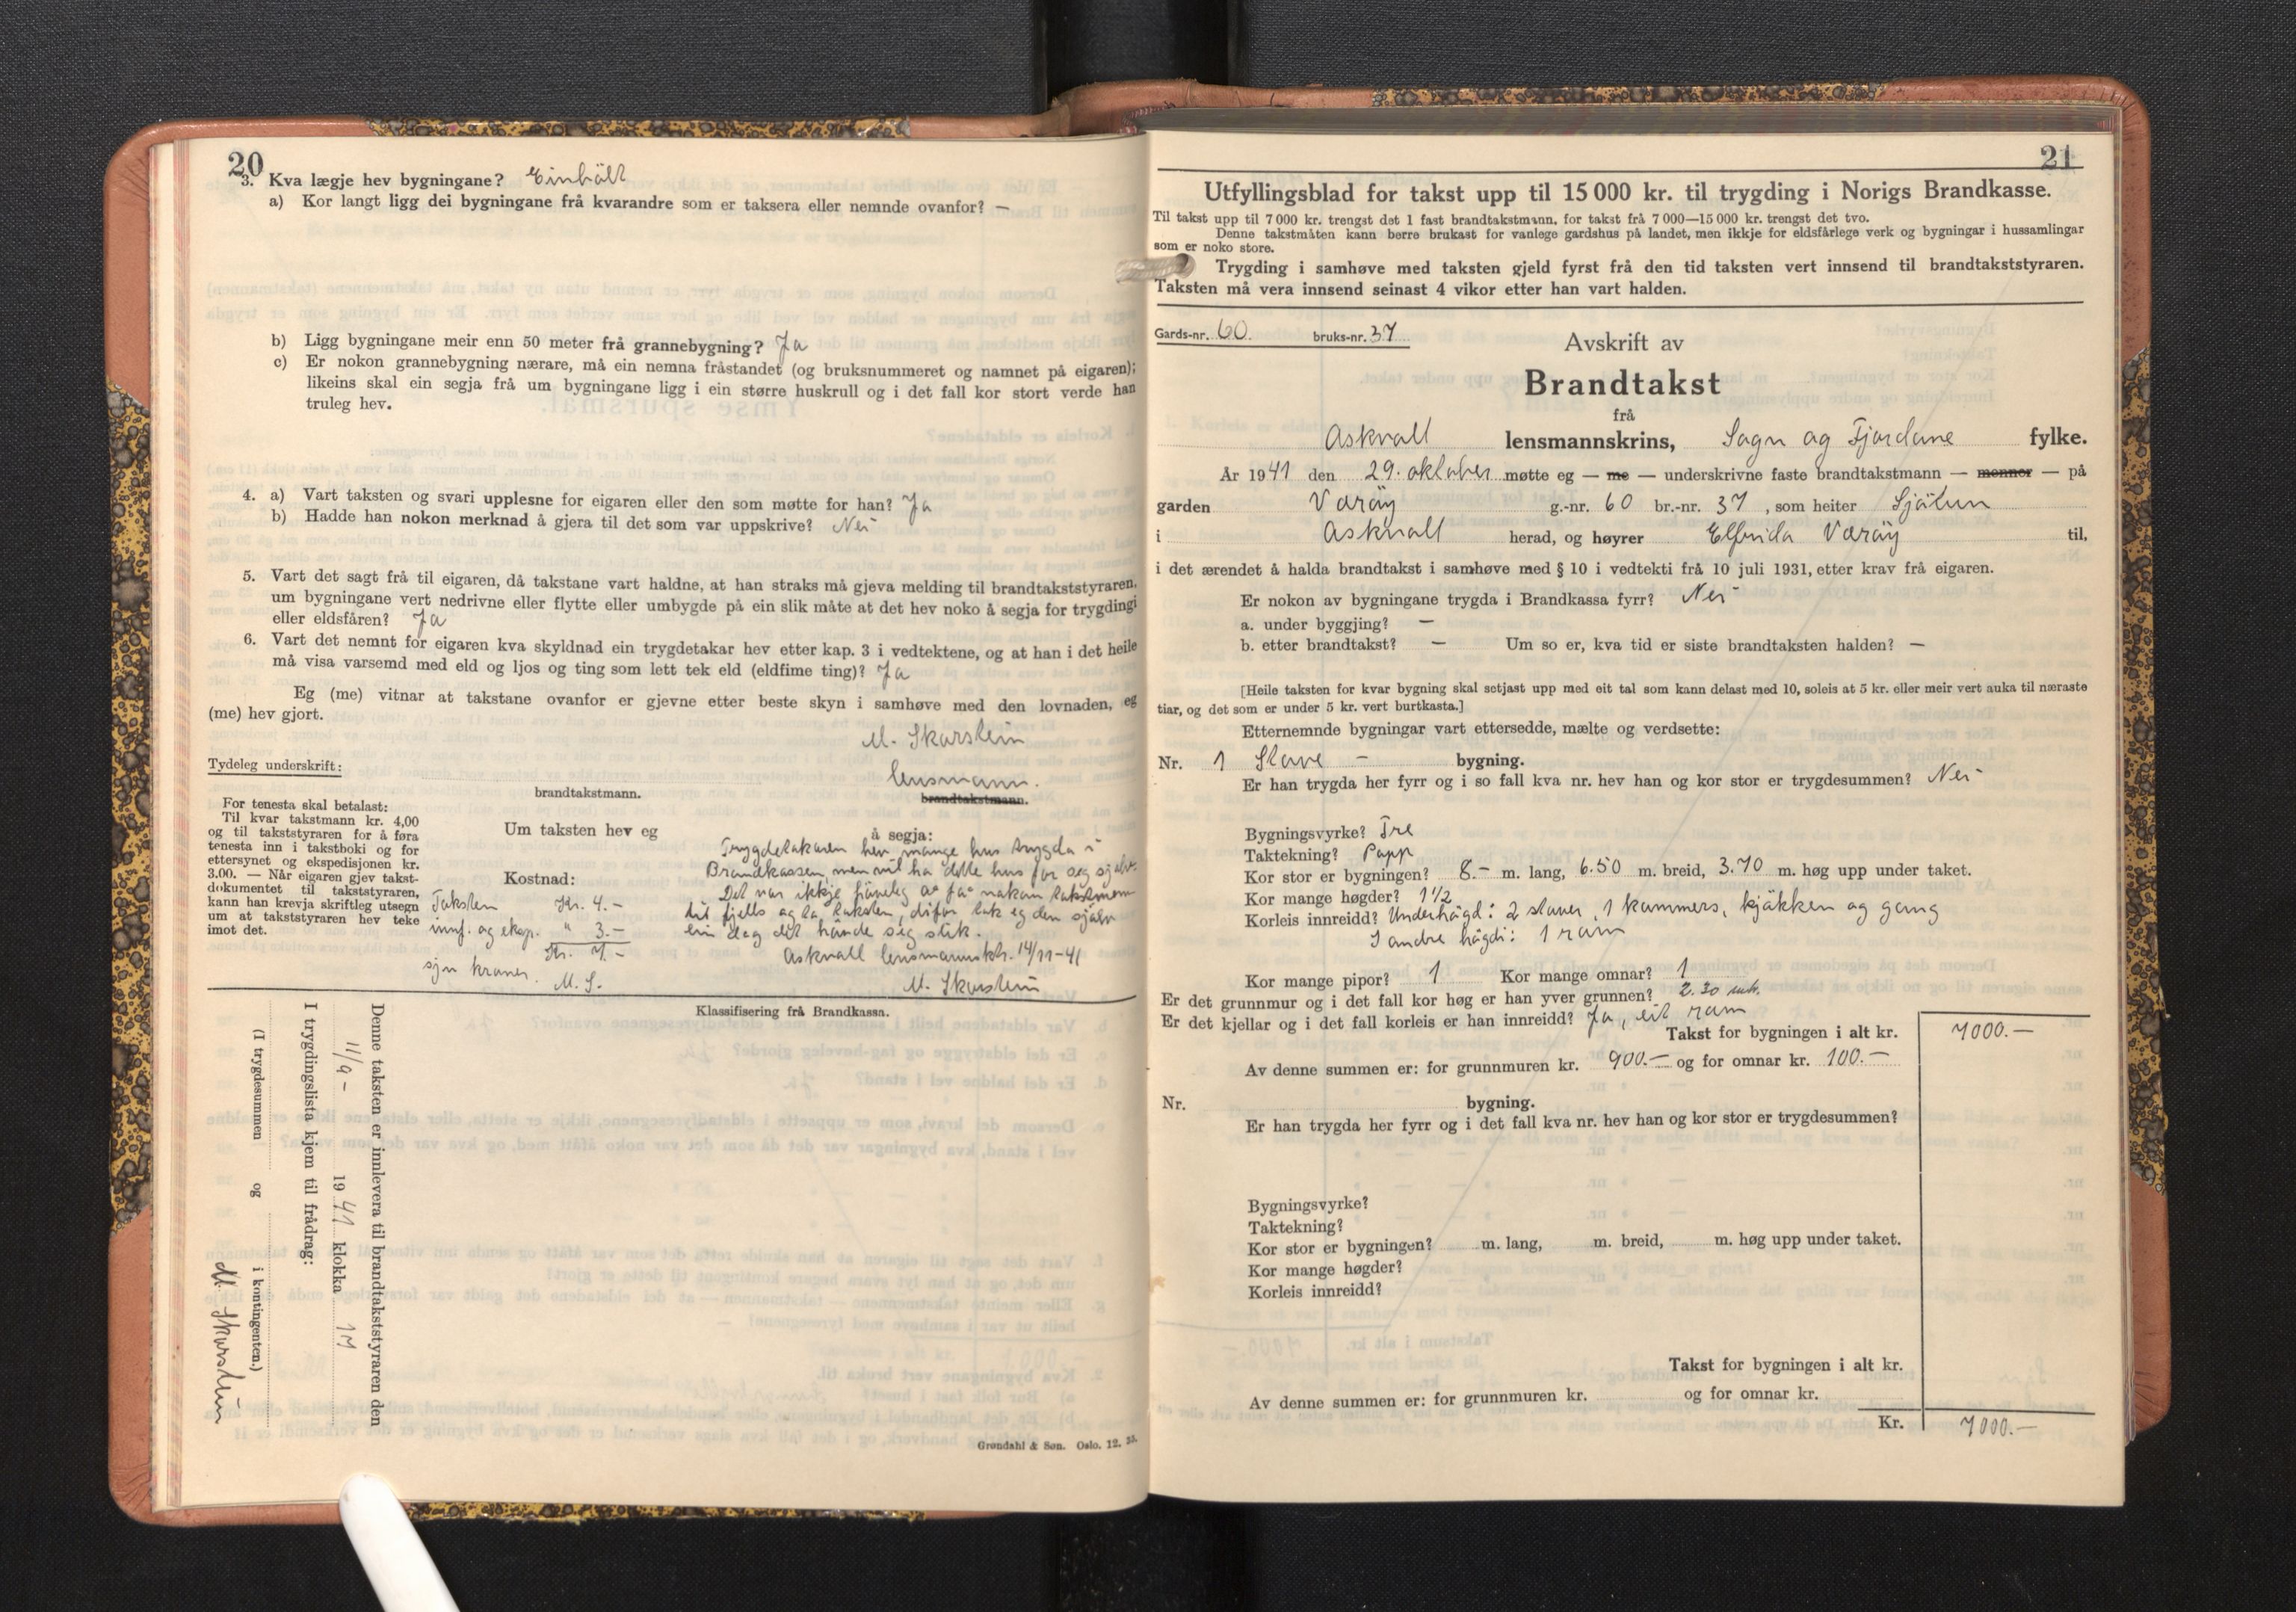 20
3. Kva lægje hev bygningane? Einbölt
a) Kor langt ligg dei bygningane frå kvarandre som er taksera eller nemnde ovanfor? —
b) Ligg bygningane meir enn 50 meter frå grannebygning? Ja
c) Er nokon grannebygning nærare, må ein nemna fråstandet (og bruksnummeret og namnet på eigaren);
likeins skal ein segja frå um bygningane ligg i ein større huskrull og i det fall kor stort verde han
truleg hev.
4. a) Vart taksten og svari upplesne for eigaren eller den som møtte for han? Ja
b) Hadde han nokon merknad å gjera til det som var uppskrive? Nei
5. Vart det sagt frå til eigaren, då takstane vart haldne, at han straks må gjeva melding til brandtakststyraren,
um bygningane vert nedrivne eller flytte eller umbygde på ein slik måte at det hev noko å segja for trygdingi
eller eldsfåren? Ja
6. Vart det nemnt for eigaren kva skyldnad ein trygdetakar hev etter kap. 3 i vedtektene, og at han i det heile
må visa varsemd med eld og ljos og ting som lett tek eld (eldfime ting)? Ja
Eg (me) vitnar at takstane ovanfor er gjevne etter beste skyn i samhøve med den lovnaden, eg
(me) hev gjort.
M. Skarstein
Tydeleg underskrift:
lensmann.
brandtakstmann.
brandtakstmann.
For tenesta skal betalast:
Til kvar takstmann kr. 4,00
og til takststyraren for å føra
tenesta inn i takstboki og for
ettersynet og ekspedisjonen kr.
3.00. — Når eigaren gjev takst-
dokumentet til takststyraren,
kann han krevja skriftleg utsegn
um at takststyraren hev teke
imot det.
Um taksten hev eg
å segja:
Kostnad:
Taksten Kr. 4.—
innf. og eksp. " 3.—
Kr. 7.—
sju kroner.
M. S.
Trygdetakaren hev mange hus trygda i
Brandkassen, men vil ha dette hus for seg sjølv.
Det var ikkje höveleg å få nakon takstmenn
til fjells og ta taksten, difor tok eg den sjølv
ein dag det hände seg slik.
Askvall lensmannsktr. 14/11-41
M. Skarstein
Klassifisering frå Brandkassa.
Denne taksten er innlevera til brandtakststyraren den
11/9 - 1941 klokka 17
I trygdingslista kjem til frådrag:
(I trygdesummen og i kontingenten.)
M. Skarstein
Grøndahl & Søn. Oslo. 12. 35.
21
Utfyllingsblad for takst upp til 15 000 kr. til trygding i Norigs Brandkasse.
Til takst upp til 7 000 kr. trengst det 1 fast brandtakstmann, for takst frå 7 000—15 000 kr. trengst det tvo.
Denne takstmåten kann berre brukast for vanlege gardshus på landet, men ikkje for eldsfårlege verk og bygningar i hussamlingar
som er noko store.
Trygding i samhøve med taksten gjeld fyrst frå den tid taksten vert innsend til brandtakststyraren.
Taksten må vera innsend seinast 4 vikor etter han vart halden.
Gards-nr. 60. bruks-nr. 37
Avskrift av
Brandtakst
frå
Askvall lensmannskrins, Sogn og Fjordane fylke.
År 1941 den 29. oktober møtte eg — me — underskrivne faste brandtakstmann — menner — på
garden Værøy g.-nr. 60 br.-nr. 37, som heiter Sjötun
i Askvall herad, og høyrer Elfrida Værøy til,
i det ærendet å halda brandtakst i samhøve med § 10 i vedtekti frå 10 juli 1931, etter krav frå eigaren.
Er nokon av bygningane trygda i Brandkassa fyrr? Nei
a. under byggjing? —
b. etter brandtakst? — Um so er, kva tid er siste brandtaksten halden? —
[Heile taksten for kvar bygning skal setjast upp med eit tal som kann delast med 10, soleis at 5 kr. eller meir vert auka til næraste
tiar, og det som er under 5 kr. vert burtkasta.]
Etternemnde bygningar vart ettersedde, mælte og verdsette:
Nr. 1 Stove - bygning.
Er han trygda her fyrr og i so fall kva nr. hev han og kor stor er trygdesummen? Nei
Bygningsvyrke? Tre
Taktekning? Papp
Kor stor er bygningen? 8.- m. lang, 6.50 m. breid, 3.70 m. høg upp under taket.
Kor mange høgder? 1½
Korleis innreidd? Underhögd: 2 stover, 1 kammers, kjökken og gang
I andre högdi: 1 rom
Kor mange pipor? 1 Kor mange omnar? 1
Er det grunnmur og i det fall kor høg er han yver grunnen? 2.30 mtr.
Er det kjellar og i det fall korleis er han innreidd? Ja, eit rom
Takst for bygningen i alt kr. 7000.—
Av denne summen er: for grunnmuren kr. 900.— og for omnar kr. 100.—
Nr. bygning.
Er han trygda her fyrr og i det fall kva nr. hev han og kor stor er trygdesummen?
Bygningsvyrke?
Taktekning?
Kor stor er bygningen? m. lang, m. breid, m. høg upp under taket.
Kor mange høgder?
Korleis innreidd?
Takst for bygningen i alt kr.
Av denne summen er: for grunnmuren kr. og for omnar kr.
Kr. 7000.—